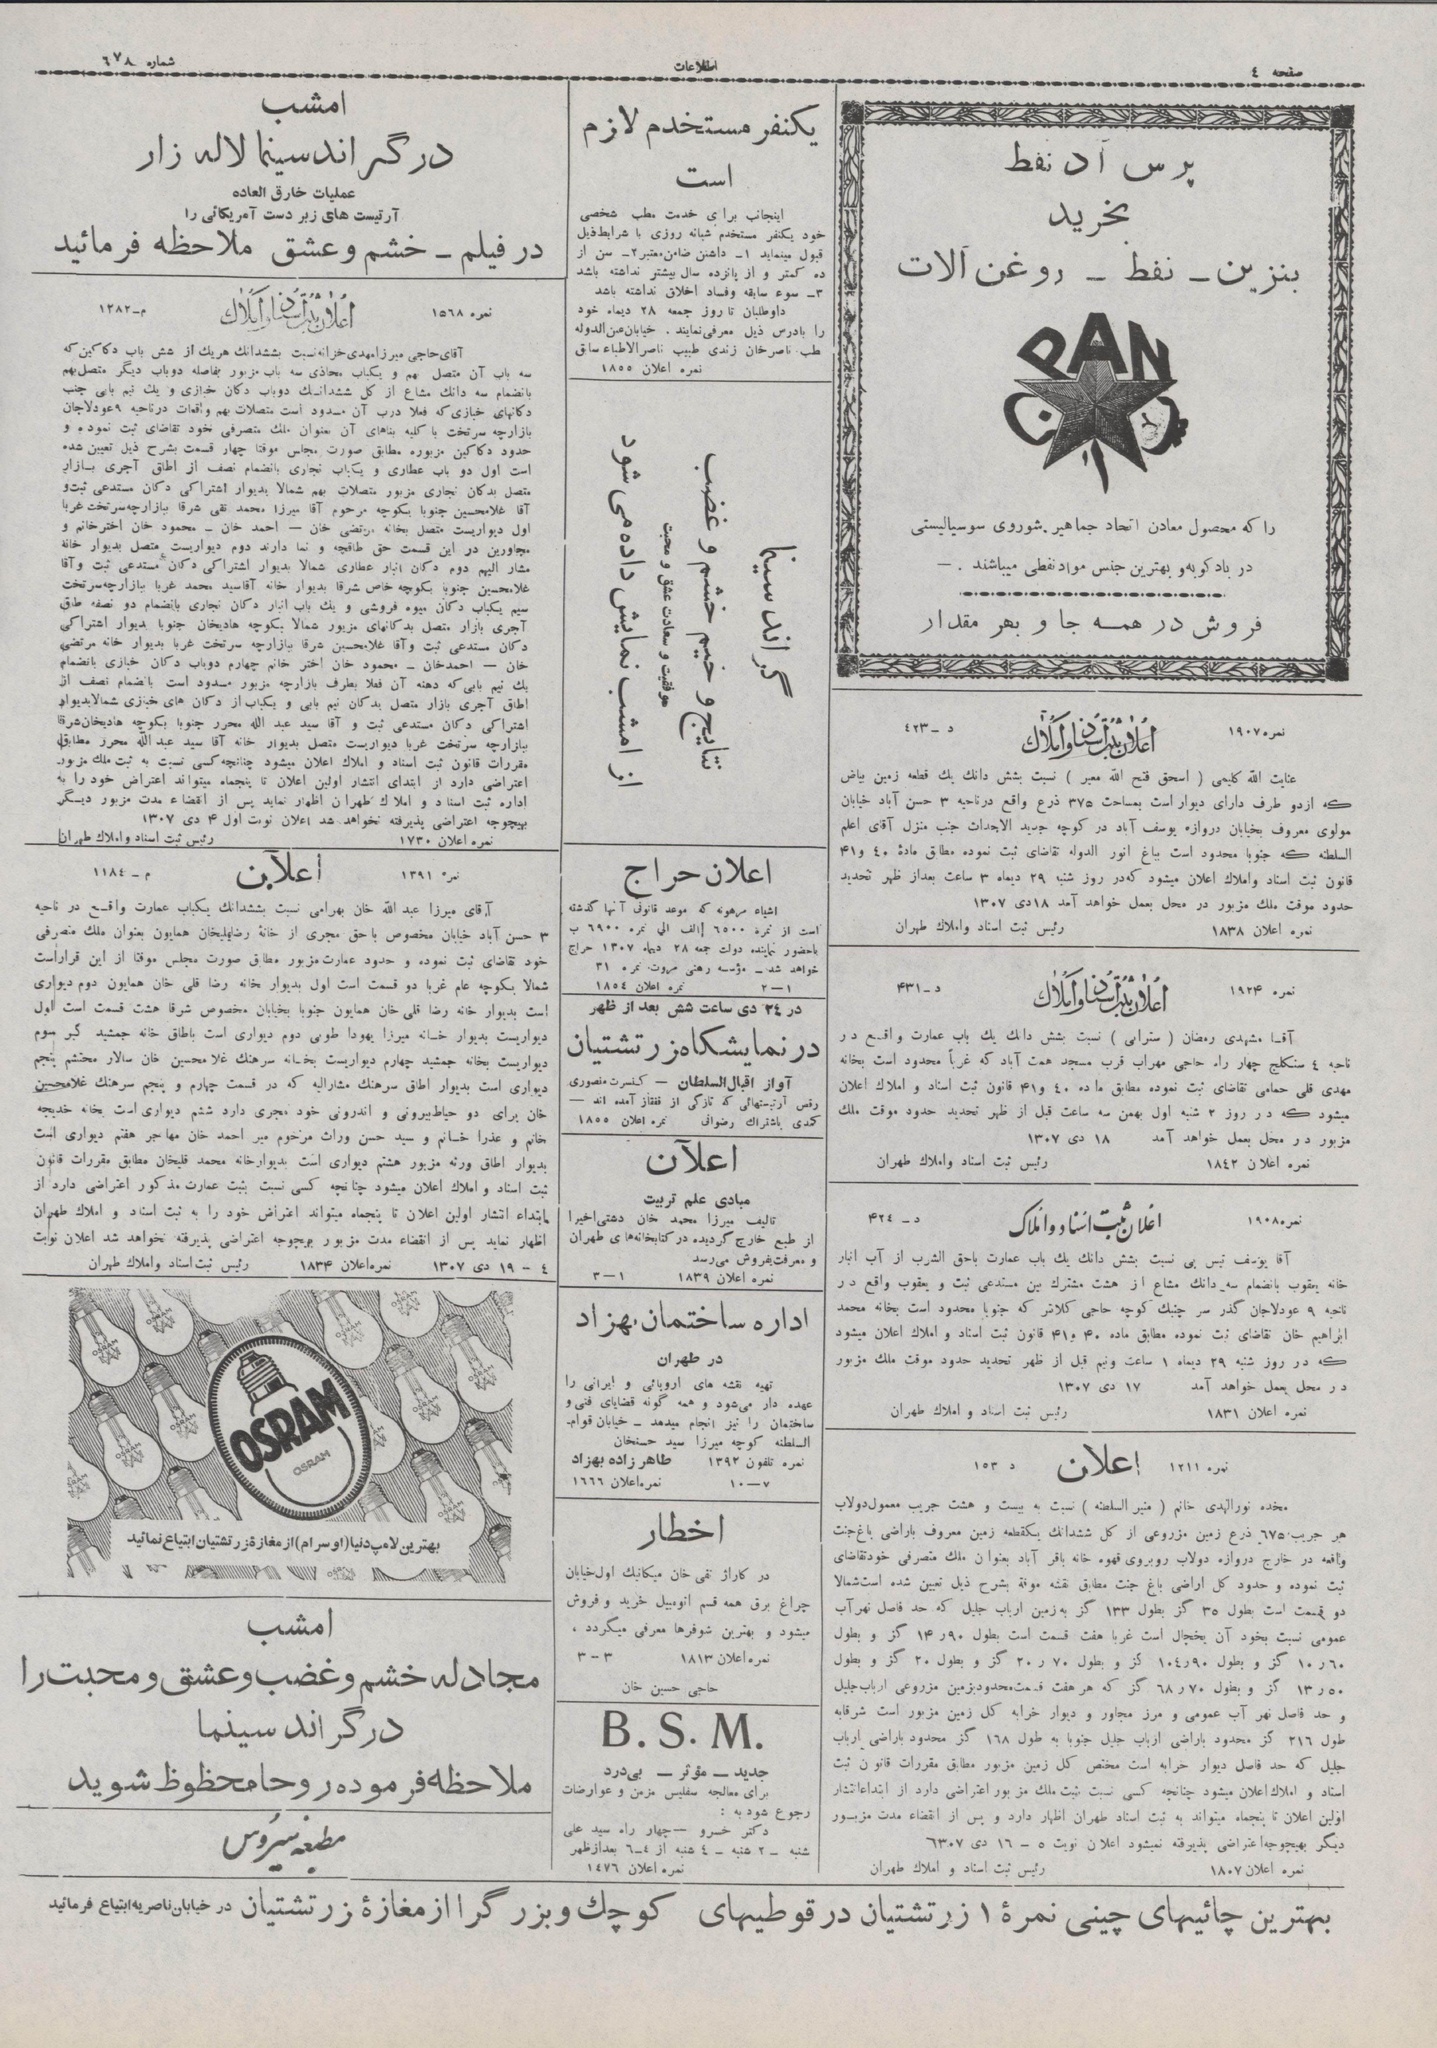 صفحه ٤
اطلاعات
شماره ٦٧٨
پرس آد نفط
بخرید
بنزین ـ نفط ـ روغن آلات
را که محصول معادن اتحاد جماهیر شوروی سوسیالیستی
در بادکوبه و بهترین جنس مواد نفطی میباشند . —
فروش در همه جا و بهر مقدار
نمره ۱۹۰۷
اعلان ثبت اسناد و املاک
د ـ ۴۲۳
عنایت الله کلیمی ( اسحق فتح الله معبر ) نسبت بشش دانك یك قطعه زمین بیاض
که ازدو طرف دارای دیوار است بمساحت ۳۷۵ ذرع واقع درناحیه ۳ حسن آباد خیابان
مولوی معروف بخیابان دروازه یوسف آباد در کوچه جدید الاحداث جنب منزل آقای اعلم
السلطنه که جنوبا محدود است بباغ انور الدوله تقاضای ثبت نموده مطابق مادۀ ۴۰ و۴۱
قانون ثبت اسناد واملاك اعلان میشود که‌در روز شنبه ۲۹ دیماه ۳ ساعت بعداز ظهر تحدید
حدود موقت ملك مزبور در محل بعمل خواهد آمد ۱۸دی ۱۳۰۷
نمره اعلان ۱۸۳۸
رئیس ثبت اسناد واملاك طهران
نمره ۱۹۲۴
اعلان ثبت اسناد و املاک
د ـ ۴۳۱
آقا مشهدی رمضان ( سترابی ) نسبت بشش دانك یك باب عمارت واقع در
ناحیه ٤ سنگلج چهار راه حاجی مهراب قرب مسجد همت آباد که غرباً محدود است بخانه
مهدی قلی حمامی تقاضای ثبت نموده مطابق ماده ۴۰ و۴۱ قانون ثبت اسناد و املاك اعلان
میشود که در روز ۲ شنبه اول بهمن سه ساعت قبل از ظهر تحدید حدود موقت ملك
مزبور در محل بعمل خواهد آمد ۱۸ دی ۱۳۰۷
نمره اعلان ۱۸۴۲
رئیس ثبت اسناد واملاك طهران
نمره ۱۹۰۸
اعلان ثبت اسناد و املاک
د ـ ۴۲۴
آقا یوسف تیس بی نسبت بشش دانك یك باب عمارت باحق الشرب از آب انبار
خانه یعقوب بانضمام سه دانك مشاع از هشت مشترك بین مستدعی ثبت و یعقوب واقع در
ناحیه ۹ عودلاجان گذر سر چنبك کوچه حاجی کلانتر که جنوبا محدود است بخانه محمد
ابراهیم خان تقاضای ثبت نموده مطابق ماده ۴۰ و۴۱ قانون ثبت اسناد و املاك اعلان میشود
که در روز شنبه ۲۹ دیماه ۱ ساعت ونیم قبل از ظهر تحدید حدود موقت ملك مزبور
در محل بعمل خواهد آمد ۱۷ دی ۱۳۰۷
نمره اعلان ۱۸۳۱
رئیس ثبت اسناد و املاك طهران
نمره ۱۲۱۱
اعلان
د ۱۵۳
مخده نورالهدی خانم ( منیر السلطنه ) نسبت به بیست و هشت جریب معمول‌دولاب
هر جریب ٦٧٥ ذرع زمین مزروعی از کل ششدانك یکقطعه زمین معروف باراضی باغ‌جنت
واقعه در خارج دروازه دولاب روبروی قهوه خانه باقر آباد بعنوان ملك متصرفی خودتقاضای
ثبت نموده و حدود کل اراضی باغ جنت مطابق نقشه موقة بشرح ذیل تعیین شده است‌شمالا
دو قسمت است بطول ۳۵ گز بطول ۱۳۳ گز به‌زمین ارباب جلیل که حد فاصل نهرآب
عمومی نسبت بخود آن یخچال است غربا هفت قسمت است بطول ۹۰ر۱۴ گز و بطول
٦۰ر۱۰ گز و بطول ۹۰ر۱۰۴ گز و بطول ۷۰ر۲۰ گز و بطول ۲۰ گز و بطول
۵۰ر۱۳ گز و بطول ۷۰ر۶۸ گز که هر هفت قسمت‌محدودبزمین مزروعی ارباب‌جلیل
و حد فاصل نهر آب عمومی و مرز مجاور و دیوار خرابه کل زمین مزبور است شرقابه
طول ۲۱٦ گز محدود باراضی ارباب جلیل جنوبا به طول ۱٦۸ گز محدود باراضی ارباب
جلیل که حد فاصل دیوار خرابه است مختص کل زمین مزبور مطابق مقررات قانون ثبت
اسناد و املاك‌اعلان میشود چنانچه کسی نسبت بثبت ملك مزبور اعتراضی دارد از ابتداءانتشار
اولین اعلان تا پنجماه میتواند به ثبت اسناد طهران اظهار دارد و پس از انقضاء مدت مزبور
دیگر بهیچوجه‌اعتراضی پذیرفته نمیشود اعلان نوبت ۵ ـ ۱٦ دی ٦۳۰۷
نمره اعلان ۱۸۰۷
رئیس ثبت اسناد و املاك طهران
یکنفر مستخدم لازم
است
اینجانب برای خدمت مطب شخصی
خود یکنفر مستخدم شبانه روزی با شرایط‌ذیل
قبول مینماید ۱ـ داشتن ضامن‌معتبر ۲ـ سن از
ده کمتر و از پانزده سال بیشتر نداشته باشد
۳ـ سوء سابقه وفساد اخلاق نداشته باشد
داوطلبان تا روز جمعه ۲۸ دیماه خود
را بادرس ذیل معرفی‌نمایند . خیابان‌عین‌الدوله
طب ناصر خان زندی طبیب ناصرالاطباءسابق
نمره اعلان ۱۸۵۵
گراند سینما
نتایج وخیم خشم و غضب
موفقیت و سعادت عشق و محبت
از امشب نمایش داده می شود
اعلان حراج
اشیاء مرهونه که موعد قانونی آنها گذشته
است از نمره ٦۵۰۰ الف الی نمره ٦۹۰۰ ب
باحضور نماینده دولت جمعه ۲۸ دیماه ۱۳۰۷ حراج
خواهد شد ـ مؤسسه رهنی مروت نمره ۳۱
۱—۲
نمره اعلان ۱۸۵٤
در ۲۴ دی ساعت شش بعد از ظهر
در نمایشگاه زرتشتیان
آواز اقبال‌السلطان — کنسرت منصوری
رقص آرتیستهائی که تازگی از قفقاز آمده اند —
کمدی باشتراك رضوانی نمره اعلان ۱۸۵۵
اعلان
مبادی علم تربیت
تالیف میرزا محمد خان دشتی‌اخیرا
از طبع خارج گردیده در کتابخانه‌های طهران
و معرفت‌بفروش می‌رسد
نمره اعلان ۱۸۳۹
۱—۳
اداره ساختمان بهزاد
در طهران
تهیه نقشه های اروپائی و ایرانی را
عهده دار می‌شود و همه گونه قضایای فنی‌و
ساختمان را نیز انجام میدهد ـ خیابان قوام‌ـ
السلطنه کوچه میرزا سید حسنخان
نمره تلفون ۱۳۹۲ طاهر زاده بهزاد
۷—۱۰
نمره‌اعلان ۱۶۶۶
اخطار
در کاراژ تقی خان میکانیك اول‌خیابان
چراغ برق همه قسم اتومبیل خرید و فروش
میشود و بهترین شوفرها معرفی میگردد ،
نمره‌اعلان ۱۸۱۳
۳—۳
حاجی حسین خان
B. S. M.
جدید ـ مؤثر ـ بی‌درد
برای معالجه سفلیس مزمن و عوارضات
رجوع شود به :
دکتر خسرو — چهار راه سید علی
شنبه ـ ۲ شنبه ـ ٤ شنبه از ٤ـ٦ بعدازظهر
نمره اعلان ۱۴۷٦
امشب
درگراند سینما لاله زار
عملیات خارق العاده
آرتیست های زبر دست آمریکائی را
در فیلم ـ خشم و عشق ملاحظه فرمائید
نمره ۱۵٦۸
اعلان ثبت اسناد و املاک
م ـ ۱۳۸۲
آقای حاجی میرزا مهدی خزانه نسبت بششدانك هریك از شش باب دکاکین که
سه باب آن متصل بهم و یکباب محاذی سه باب مزبور بفاصله دوباب دیگر متصل‌بهم
بانضمام سه دانك مشاع از کل ششدانك دوباب دکان خبازی و یك نیم بابی جنب
دکانهای خبازی که فعلا درب آن مسدود است متصلات بهم واقعات درناحیه ۹عودلاجان
بازارچه سرتخت با کلیه بناهای آن بعنوان ملك متصرفی خود تقاضای ثبت نموده و
حدود دکاکین مزبوره مطابق صورت مجلس موقتا چهار قسمت بشرح ذیل تعیین شده
است اول دو باب عطاری و یکباب نجاری بانضمام نصف از اطاق آجری بازار
متصل بدکان نجاری مزبور متصلات بهم شمالا بدیوار اشتراکی دکان مستدعی ثبت‌و
آقا غلامحسین جنوبا بکوچه مرحوم آقا میرزا محمد تقی شرقا ببازارچه‌سرتخت غربا
اول دیواریست متصل بخانه مرتضی خان — احمد خان ـ محمود خان اخترخانم و
مجاورین در این قسمت حق طاقچه و نما دارند دوم دیواریست متصل بدیوار خانه
مشار الیهم دوم دکان انبار عطاری شمالا بدیوار اشتراکی دکان مستدعی ثبت وآقا
غلامحسین جنوبا بکوچه خاص شرقا بدیوار خانه آقاسید محمد غربا ببازارچه سرتخت
سیم یکباب دکان میوه فروشی و یك باب انبار دکان نجاری بانضمام دو نصفه طاق
آجری بازار متصل بدکانهای مزبور شمالا بکوچه هادیخان جنوبا بدیوار اشتراکی
دکان مستدعی ثبت وآقا غلامحسین شرقا ببازارچه سرتخت غربا بدیوار خانه مرتضی
خان — احمدخان ـ محمود خان اختر خانم چهارم دوباب دکان خبازی بانضمام
یك نیم بابی که دهنه آن فعلا بطرف بازارچه مزبور مسدود است بانضمام نصف از
اطاق آجری بازار متصل بدکان نیم بابی و یکباب از دکان های خبازی شمالابدیوار
اشتراکی دکان مستدعی ثبت و آقا سید عبد الله محرر جنوبا بکوچه هادیخان‌شرقا
ببازارچه سرتخت غربا دیواریست متصل بدیوار خانه آقا سید عبدالله محرر مطابق
مقررات قانون ثبت اسناد و املاك اعلان میشود چنانچه کسی نسبت به ثبت ملك مزبور
اعتراضی دارد از ابتدای انتشار اولین اعلان تا پنجماه میتواند اعتراض خود را به
اداره ثبت اسناد و املاك طهران اظهار نماید پس از انقضاء مدت مزبور دیگر
بهیچوجه اعتراضی پذیرفته نخواهد شد اعلان نوبت اول ۴ دی ۱۳۰۷
نمره اعلان ۱۷۳۰
رئیس ثبت اسناد واملاك طهران
نمره ۱۳۹۱
اعلان
م ـ ۱۱۸٤
آقای میرزا عبد الله خان بهرامی نسبت بششدانك یکباب عمارت واقع در ناحیه
۳ حسن آباد خیابان مخصوص باحق مجری از خانۀ رضاقلیخان همایون بعنوان ملك متصرفی
خود تقاضای ثبت نموده و حدود عمارت مزبور مطابق صورت مجلس موقتا از این قراراست
شمالا بکوچه عام غربا دو قسمت است اول بدیوار خانه رضا قلی خان همایون دوم دیواری
است بدیوار خانه رضا قلی خان همایون جنوبا بخیابان مخصوص شرقا هشت قسمت است اول
دیواریست بدیوار خانه میرزا یهودا طوبی دوم دیواری است باطاق خانه جمشید گبر سوم
دیواریست بخانه جمشید چهارم دیواریست بخانه سرهنك غلامحسین خان سالار محتشم پنجم
دیواری است بدیوار اطاق سرهنك مشارالیه که در قسمت چهارم و پنجم سرهنك غلامحسین
خان برای دو حیاط‌بیرونی و اندرونی خود مجری دارد ششم دیواری‌است بخانه خدیجه
خانم و عذرا خانم و سید حسن وراث مرحوم میر احمد خان مهاجر هفتم دیواری است
بدیوار اطاق ورثه مزبور هشتم دیواری است بدیوارخانه محمد قلیخان مطابق مقررات قانون
ثبت اسناد و املاك اعلان میشود چنانچه کسی نسبت بثبت عمارت مذکور اعتراضی دارد از
ابتداء انتشار اولین اعلان تا پنجماه میتواند اعتراض خود را به ثبت اسناد و املاك طهران
اظهار نماید پس از انقضاء مدت مزبور بهیچوجه اعتراضی پذیرفته نخواهد شد اعلان نوبت
٤ – ۱۹ دی ۱۳۰۷ نمره‌اعلان ۱۸۳۴ رئیس ثبت‌اسناد واملاك طهران
OSRAM
OSRAM
بهترین لامپ دنیا (اوسرام) از مغازۀ زرتشتیان ابتیاع نمائید
امشب
مجادله خشم و غضب و عشق و محبت را
درگراند سینما
ملاحظه فرموده روحا محظوظ شوید
مطبعه سیروس
بهترین چائیهای چینی نمرۀ ۱ زرتشتیان در قوطیهای کوچك و بزرگ را از مغازۀ زرتشتیان در خیابان ناصریه ابتیاع فرمائید